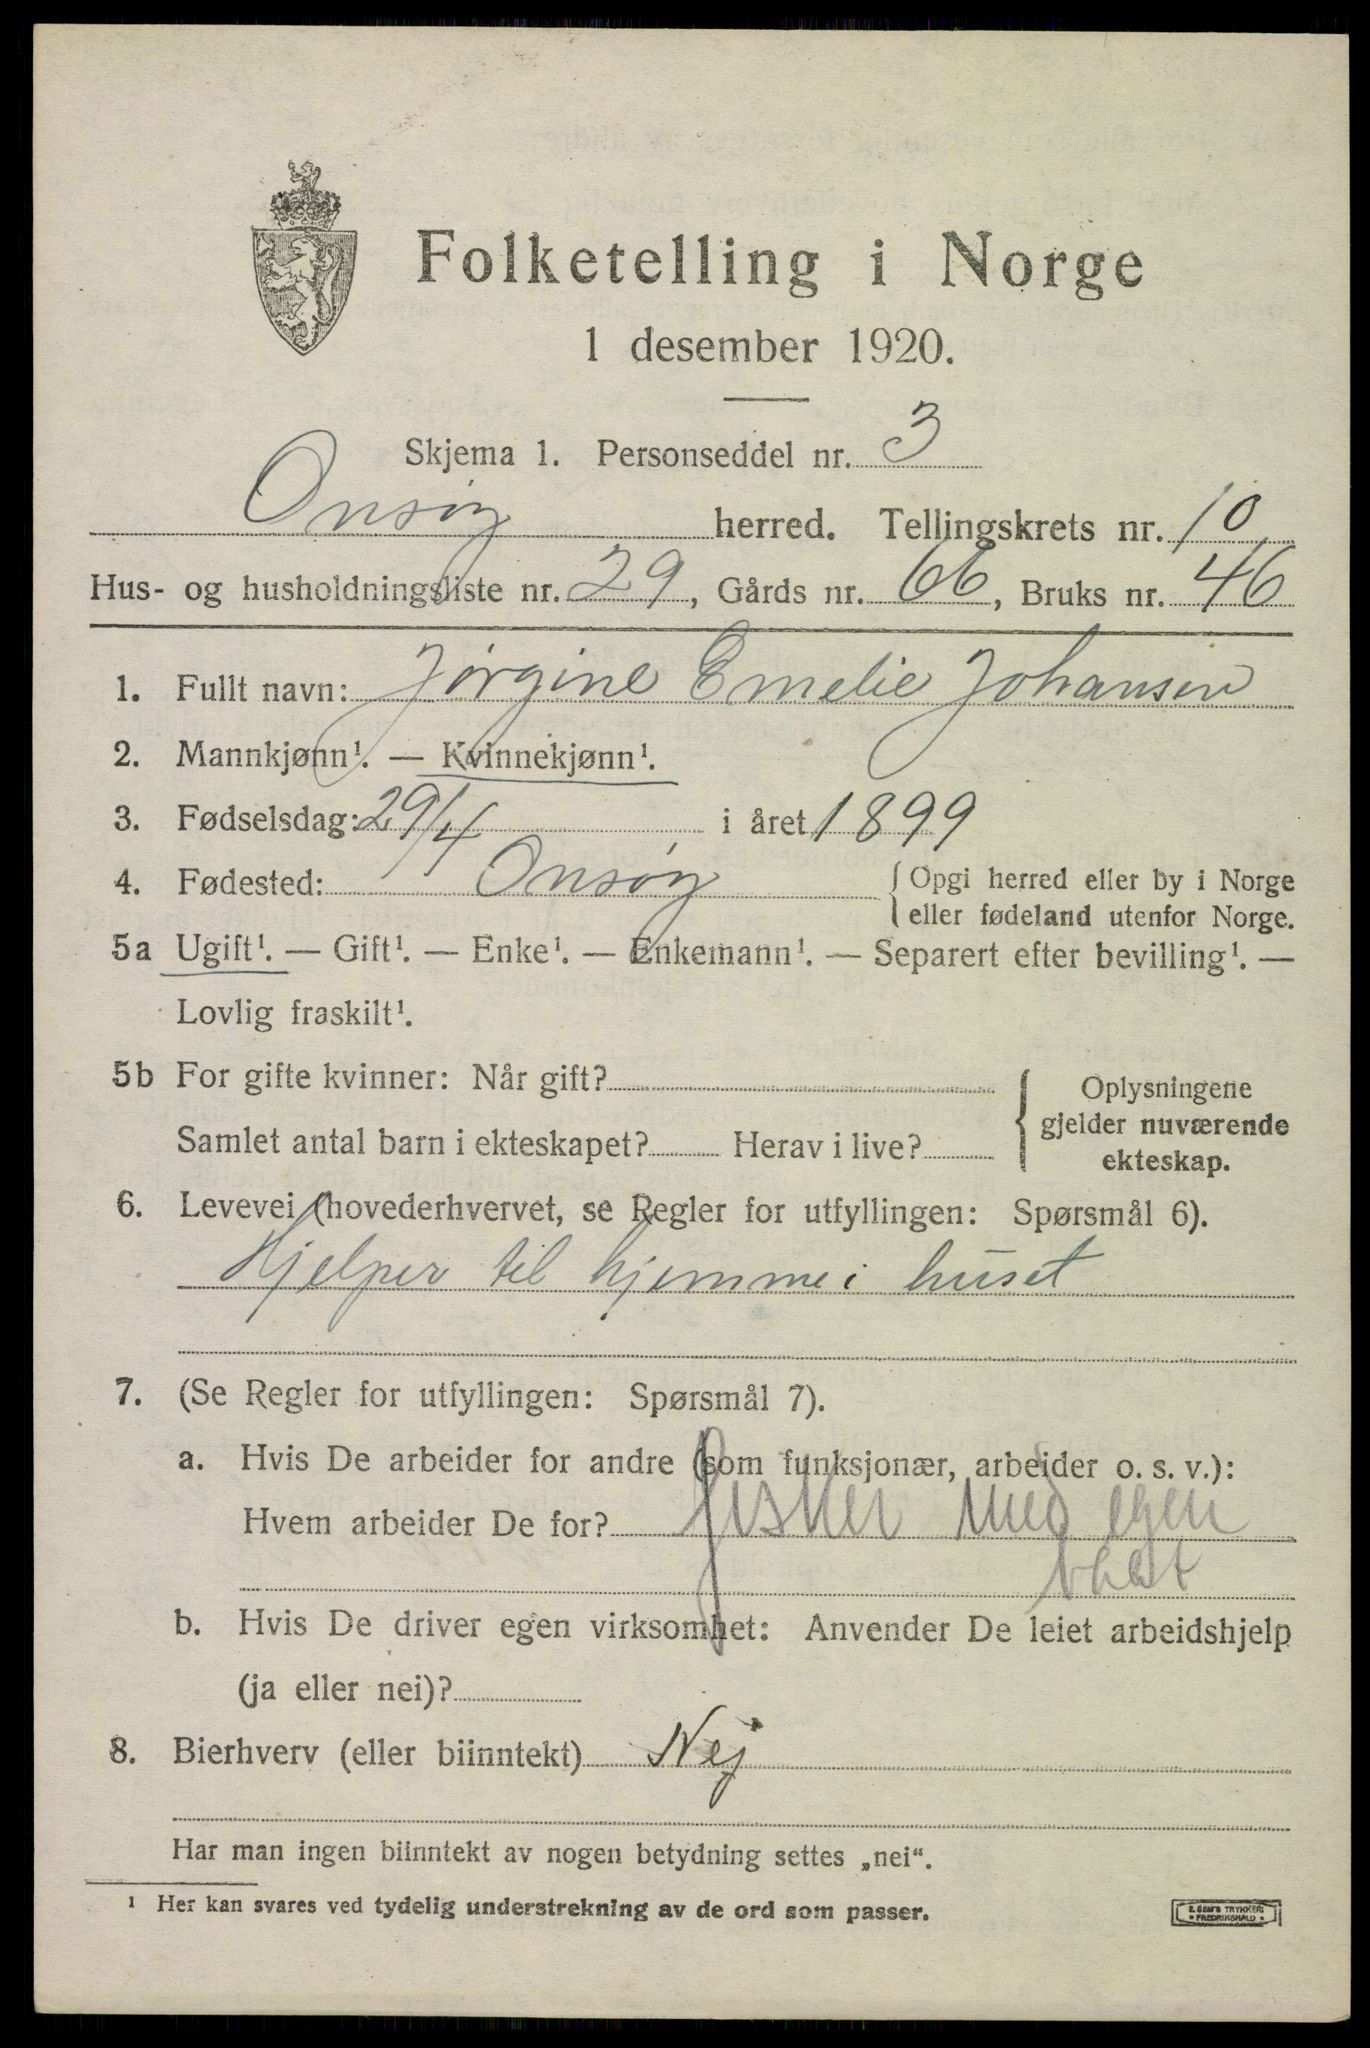 Folketelling i Norge
1 desember 1920.
Skjema 1. Personseddel nr. 3
Onsøy herred. Tellingskrets nr. 10
Hus- og husholdningsliste nr. 29, Gårds nr. 66, Bruks nr. 46
1. Fullt navn: Jørgine Emelie Johansen
2. Mannkjønn¹. — Kvinnekjønn¹.
3. Fødselsdag: 29/4 i året 1899
4. Fødested: Onsøy { Opgi herred eller by i Norge
eller fødeland utenfor Norge.
5a Ugift¹. — Gift¹. — Enke¹. — Enkemann¹. — Separert efter bevilling¹. —
Lovlig fraskilt¹.
5b For gifte kvinner: Når gift?
Samlet antal barn i ekteskapet? Herav i live?
{ Oplysningene
gjelder nuværende
ekteskap.
6. Levevei (hovederhvervet, se Regler for utfyllingen: Spørsmål 6).
Hjelper til hjemme i huset
7. (Se Regler for utfyllingen: Spørsmål 7).
a. Hvis De arbeider for andre (som funksjonær, arbeider o. s. v.):
Hvem arbeider De for? fisker med egen
båt
b. Hvis De driver egen virksomhet: Anvender De leiet arbeidshjelp
(ja eller nei)?
8. Bierhverv (eller biinntekt) Nej
Har man ingen biinntekt av nogen betydning settes „nei“.
¹ Her kan svares ved tydelig understrekning av de ord som passer.
E. SEM'S TRYKKERI
• FREDRIKSHALD •